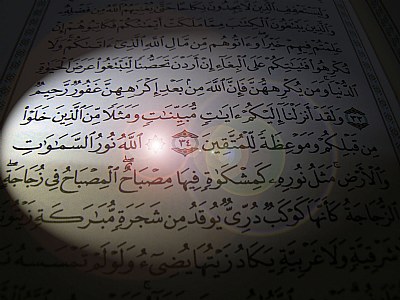 وَلْيَسْتَعْفِفِ ٱلَّذِينَ لَا يَجِدُونَ نِكَاحًا حَتَّىٰ يُغْنِيَهُمُ ٱللَّهُ
وَٱلَّذِينَ يَبْتَغُونَ ٱلْكِتَٰبَ مِمَّا مَلَكَتْ أَيْمَٰنُكُمْ
عَلِمْتُمْ فِيهِمْ خَيْرًا وَءَاتُوهُم مِّن مَّالِ ٱللَّهِ ٱلَّذِىٓ ءَاتَىٰكُمْ وَلَا
تُكْرِهُوا۟ فَتَيَٰتِكُمْ عَلَى ٱلْبِغَآءِ إِنْ أَرَدْنَ تَحَصُّنًا لِّتَبْتَغُوا۟ عَرَضَ ٱلْحَيَوٰةِ
ٱلدُّنْيَا وَمَن يُكْرِههُّنَّ فَإِنَّ ٱللَّهَ مِنۢ بَعْدِ إِكْرَٰهِهِنَّ غَفُورٌ رَّحِيمٌ
٣٣ وَلَقَدْ أَنزَلْنَآ إِلَيْكُمْ ءَايَٰتٍ مُّبَيِّنَٰتٍ وَمَثَلًا مِّنَ ٱلَّذِينَ خَلَوْا۟
مِن قَبْلِكُمْ وَمَوْعِظَةً لِّلْمُتَّقِينَ ٣٤ ٱللَّهُ نُورُ ٱلسَّمَٰوَٰتِ
وَٱلْأَرْضِ مَثَلُ نُورِهِۦ كَمِشْكَوٰةٍ فِيهَا مِصْبَاحٌ ٱلْمِصْبَاحُ فِى زُجَاجَةٍ
ٱلزُّجَاجَةُ كَأَنَّهَا كَوْكَبٌ دُرِّىٌّ يُوقَدُ مِن شَجَرَةٍ مُّبَٰرَكَةٍ زَيْتُونَةٍ
شَرْقِيَّةٍ وَلَا غَرْبِيَّةٍ يَكَادُ زَيْتُهَا يُضِىٓءُ وَلَوْ لَمْ تَمْسَسْهُ